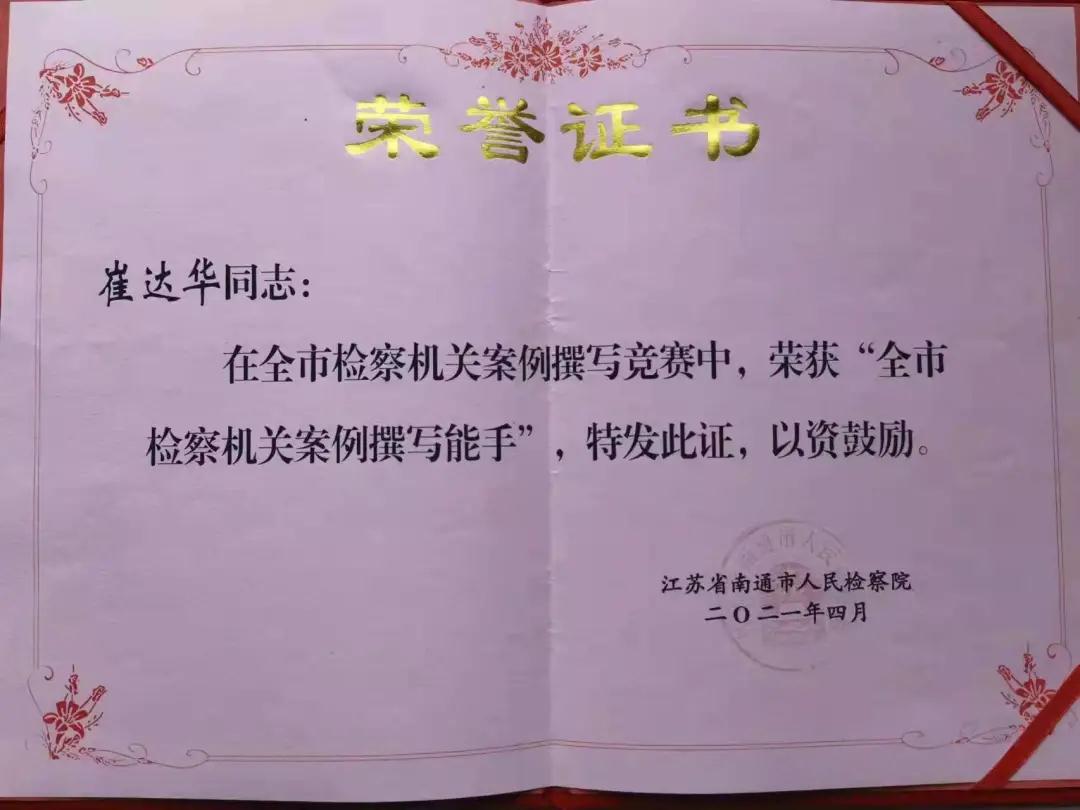 荣誉证书
崔达华同志：
在全市检察机关案例撰写竞赛中，荣获“全市
检察机关案例撰写能手”，特发此证，以资鼓励。
江苏省南通市人民检察院
二〇二一年四月